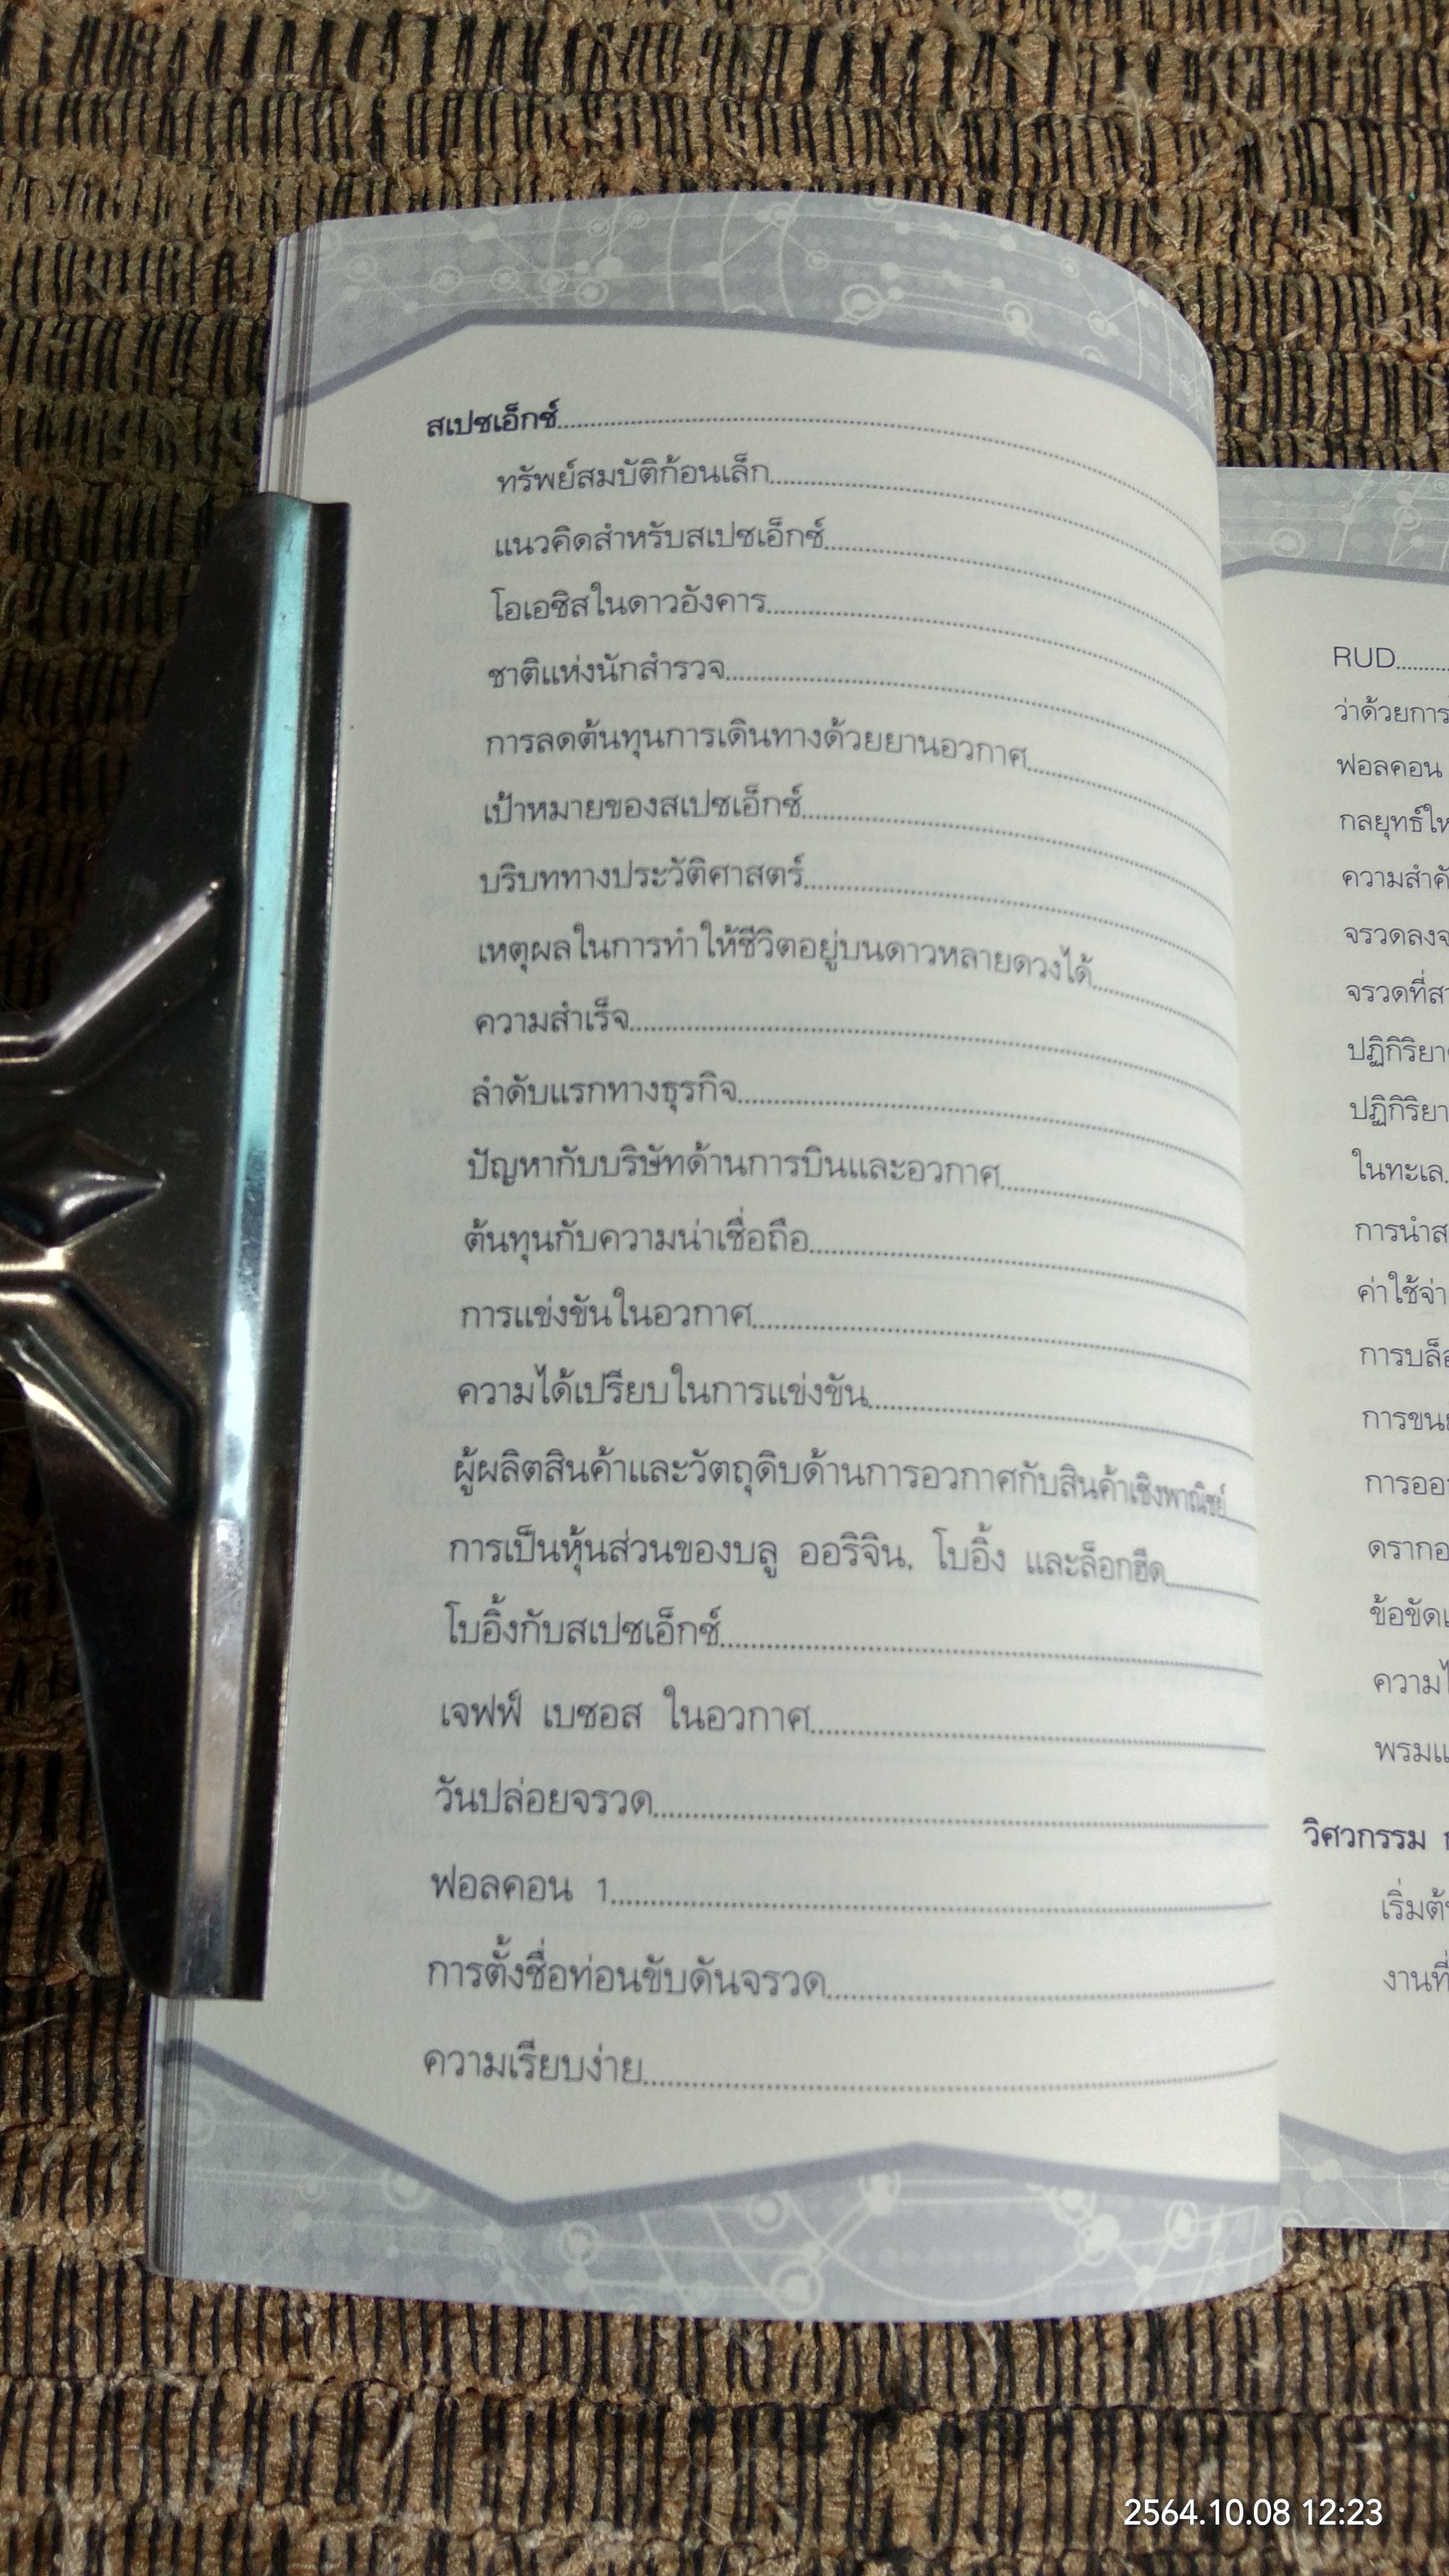 สเปซเอ็กซ์
ทรัพย์สมบัติก้อนเล็ก
แนวคิดสำหรับสเปซเอ็กซ์
โอเอซิสในดาวอังคาร
ชาติแห่งนักสำรวจ
การลดต้นทุนการเดินทางด้วยยานอวกาศ
เป้าหมายของสเปซเอ็กซ์
บริบททางประวัติศาสตร์
เหตุผลในการทำให้ชีวิตอยู่บนดาวหลายดวงได้
ความสำเร็จ
ลำดับแรกทางธุรกิจ
ปัญหากับบริษัทด้านการบินและอวกาศ
ต้นทุนกับความน่าเชื่อถือ
การแข่งขันในอวกาศ
ความได้เปรียบในการแข่งขัน
ผู้ผลิตสินค้าและวัตถุดิบด้านการอวกาศกับสินค้าเชิงพาณิชย์
การเป็นหุ้นส่วนของบลู ออริจิน, โบอิ้ง และล็อกฮีด
โบอิ้งกับสเปซเอ็กซ์
เจฟฟ์ เบซอส ในอวกาศ
วันปล่อยจรวด
ฟอลคอน 1
การตั้งชื่อท่อนขับดันจรวด
ความเรียบง่าย
RUD
ว่าด้วยการ
ฟอลคอน
กลยุทธ์ให
ความสำคั
จรวดลงจ
จรวดที่สา
ปฏิกิริยา
ปฏิกิริยา
ในทะเล
การนำส
ค่าใช้จ่า
การบล็อ
การขน
การออ
ดรากอ
ข้อขัด
ความไ
พรมแ
วิศวกรรม
เริ่มต้
งานที่
2564.10.08 12:23